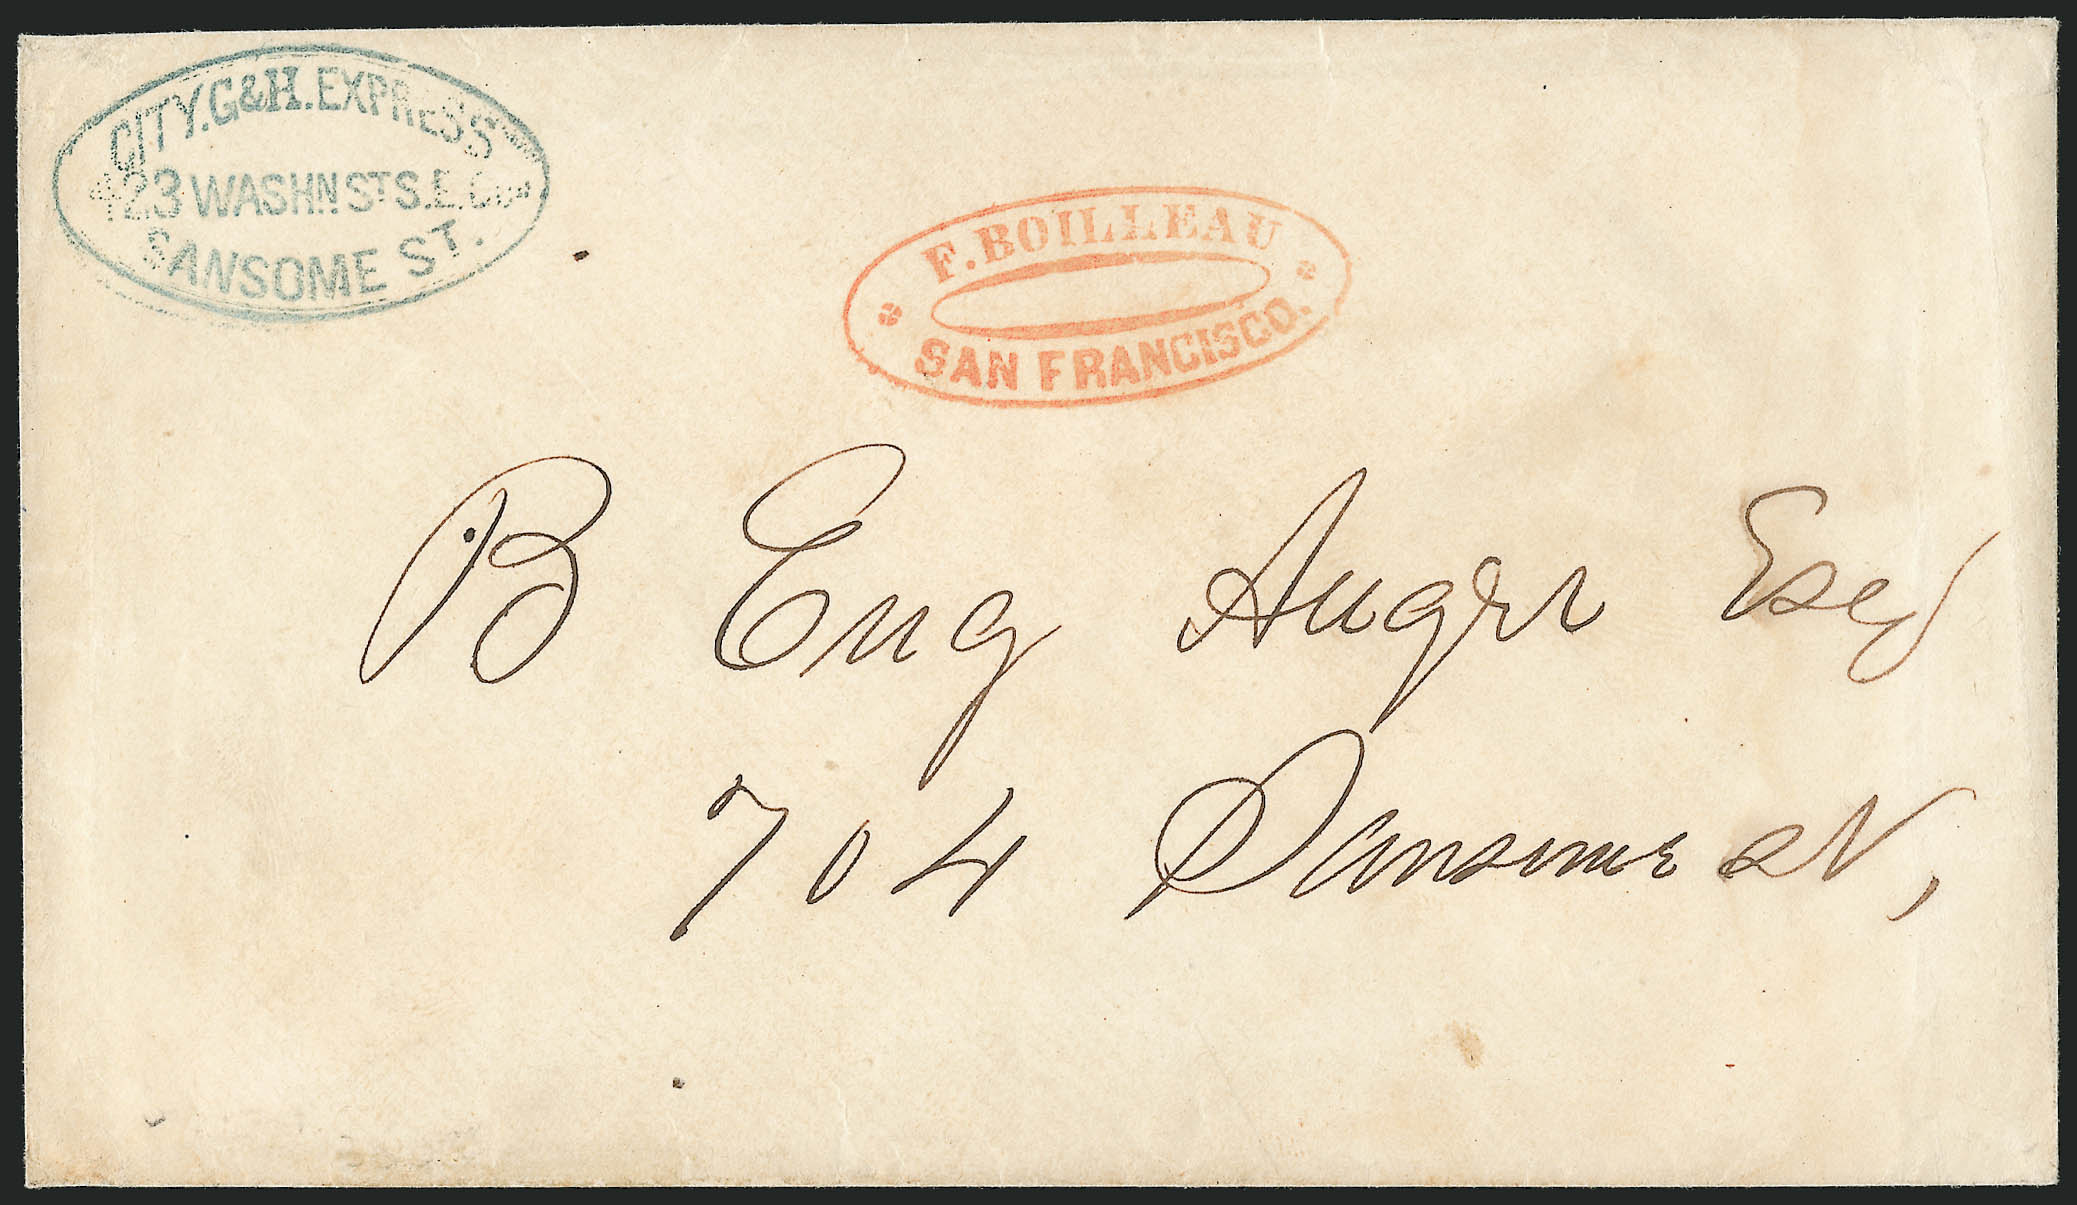 CITY.G&H.EXPRESS
423 WASHN ST S.E. Cor
SANSOME ST.
F. BOILLEAU
SAN FRANCISCO.
B Eug Auger Esq
704 Sansome St,